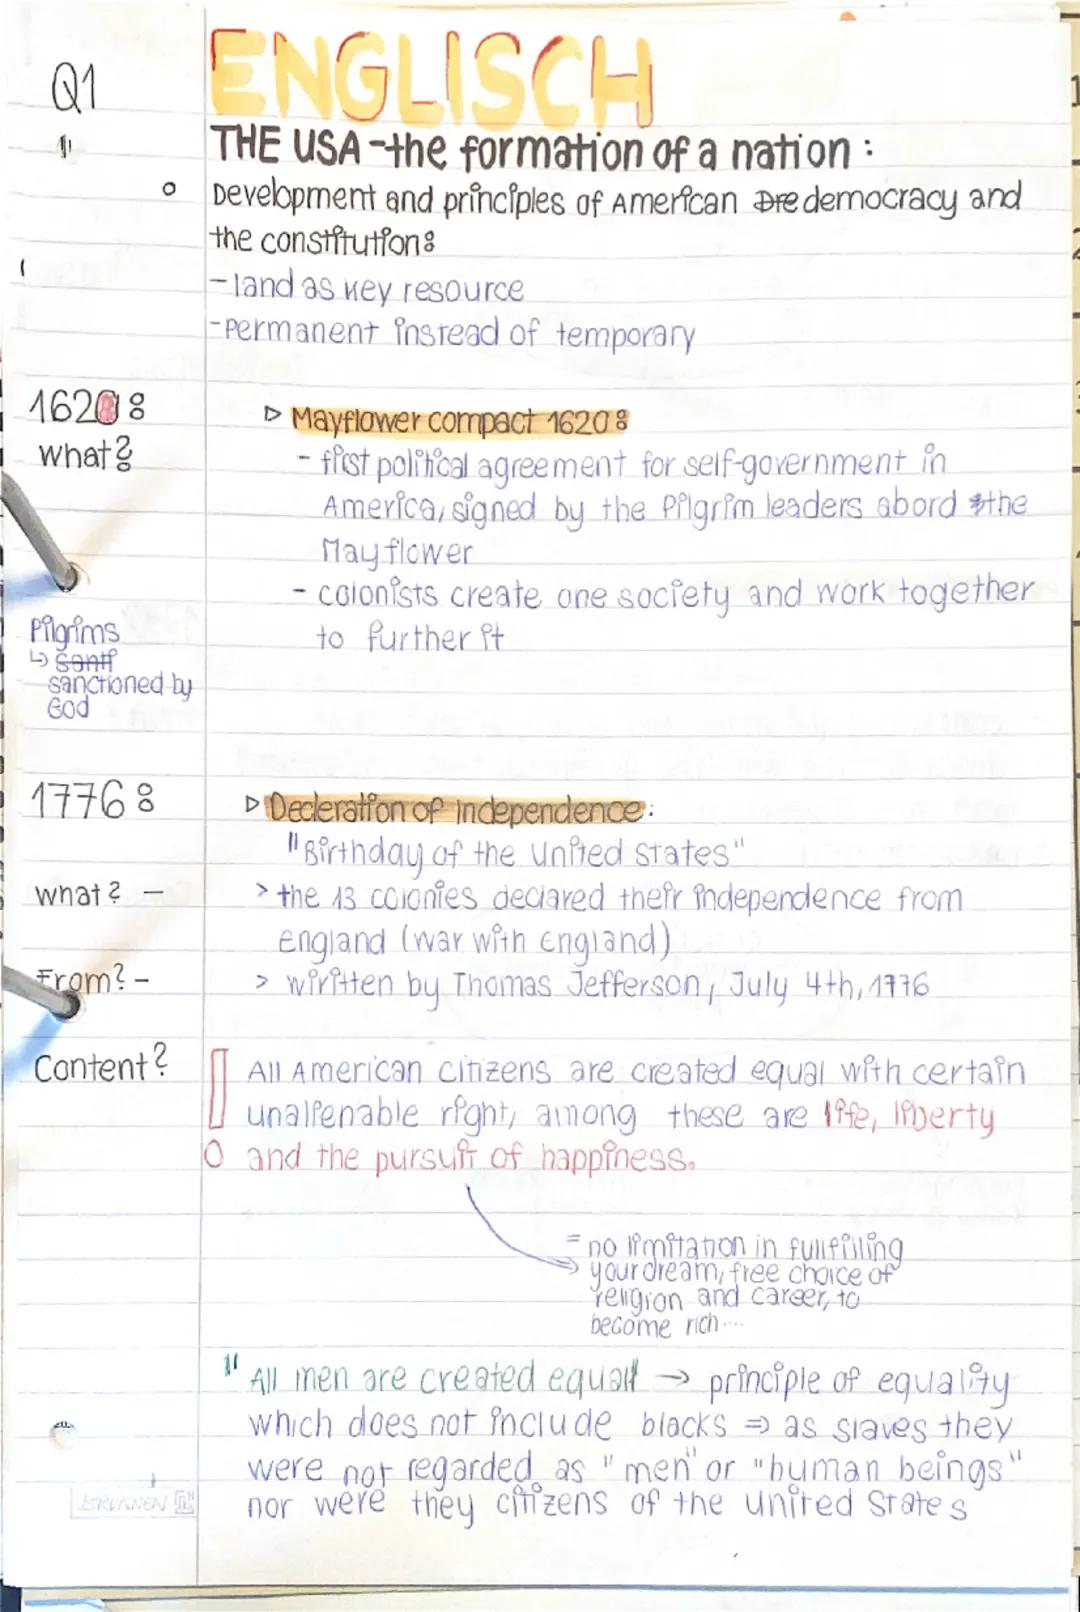 Q1
ENGLISCH
THE USA-the formation of a nation:
Development and principles of American Dre democracy and
the constitution:
-land as key resource
-permanent instead of temporary
1620:
what?
▷ Mayflower compact 1620:
- first political agreement for self-government in
America, signed by the Pilgrim leaders abord the
Mayflower
- colonists create one society and work together
to further it
Pilgrims
↳ santi
sanctioned by
God
1776:
▷ Decleration of Independence:
"Birthday of the United States"
what? -
> the 13 colonies declared their independence from
England (war with England)
From? -
> wiritten by Thomas Jefferson, July 4th, 1776
Content?
All American citizens are created equal with certain
unalienable right, among these are life, liberty
and the pursuit of happiness.
= no limitation in fullfilling
your dream, free choice of
religion and career, to
become rich...
"All men are created equal" → principle of equality
which does not include blacks ⇒ as slaves they
were not regarded as "men" or "human beings"
nor were they citizens of the united States
BRUNNEN